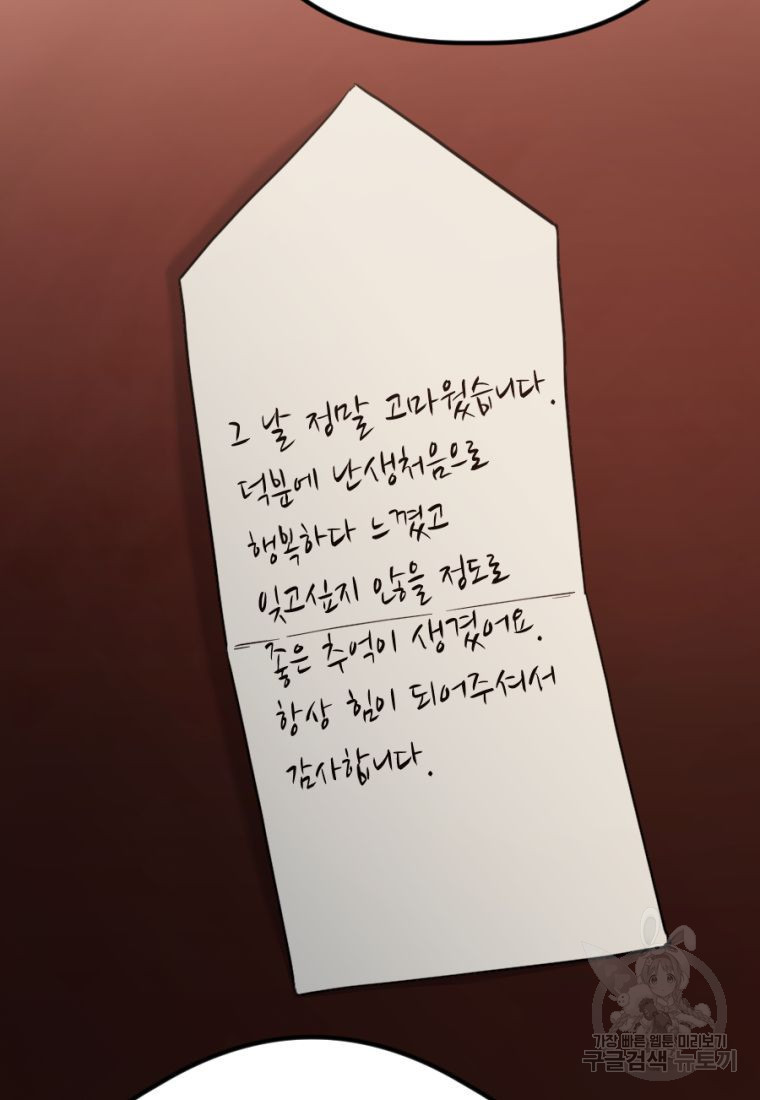 그 날 정말 고마웠습니다.
덕분에 난생처음으로
행복하다 느꼈고
잊고싶지 않을 정도로
좋은 추억이 생겼어요.
항상 힘이 되어주셔서
감사합니다.
가장 빠른 웹툰 미리보기
구글검색 뉴토끼